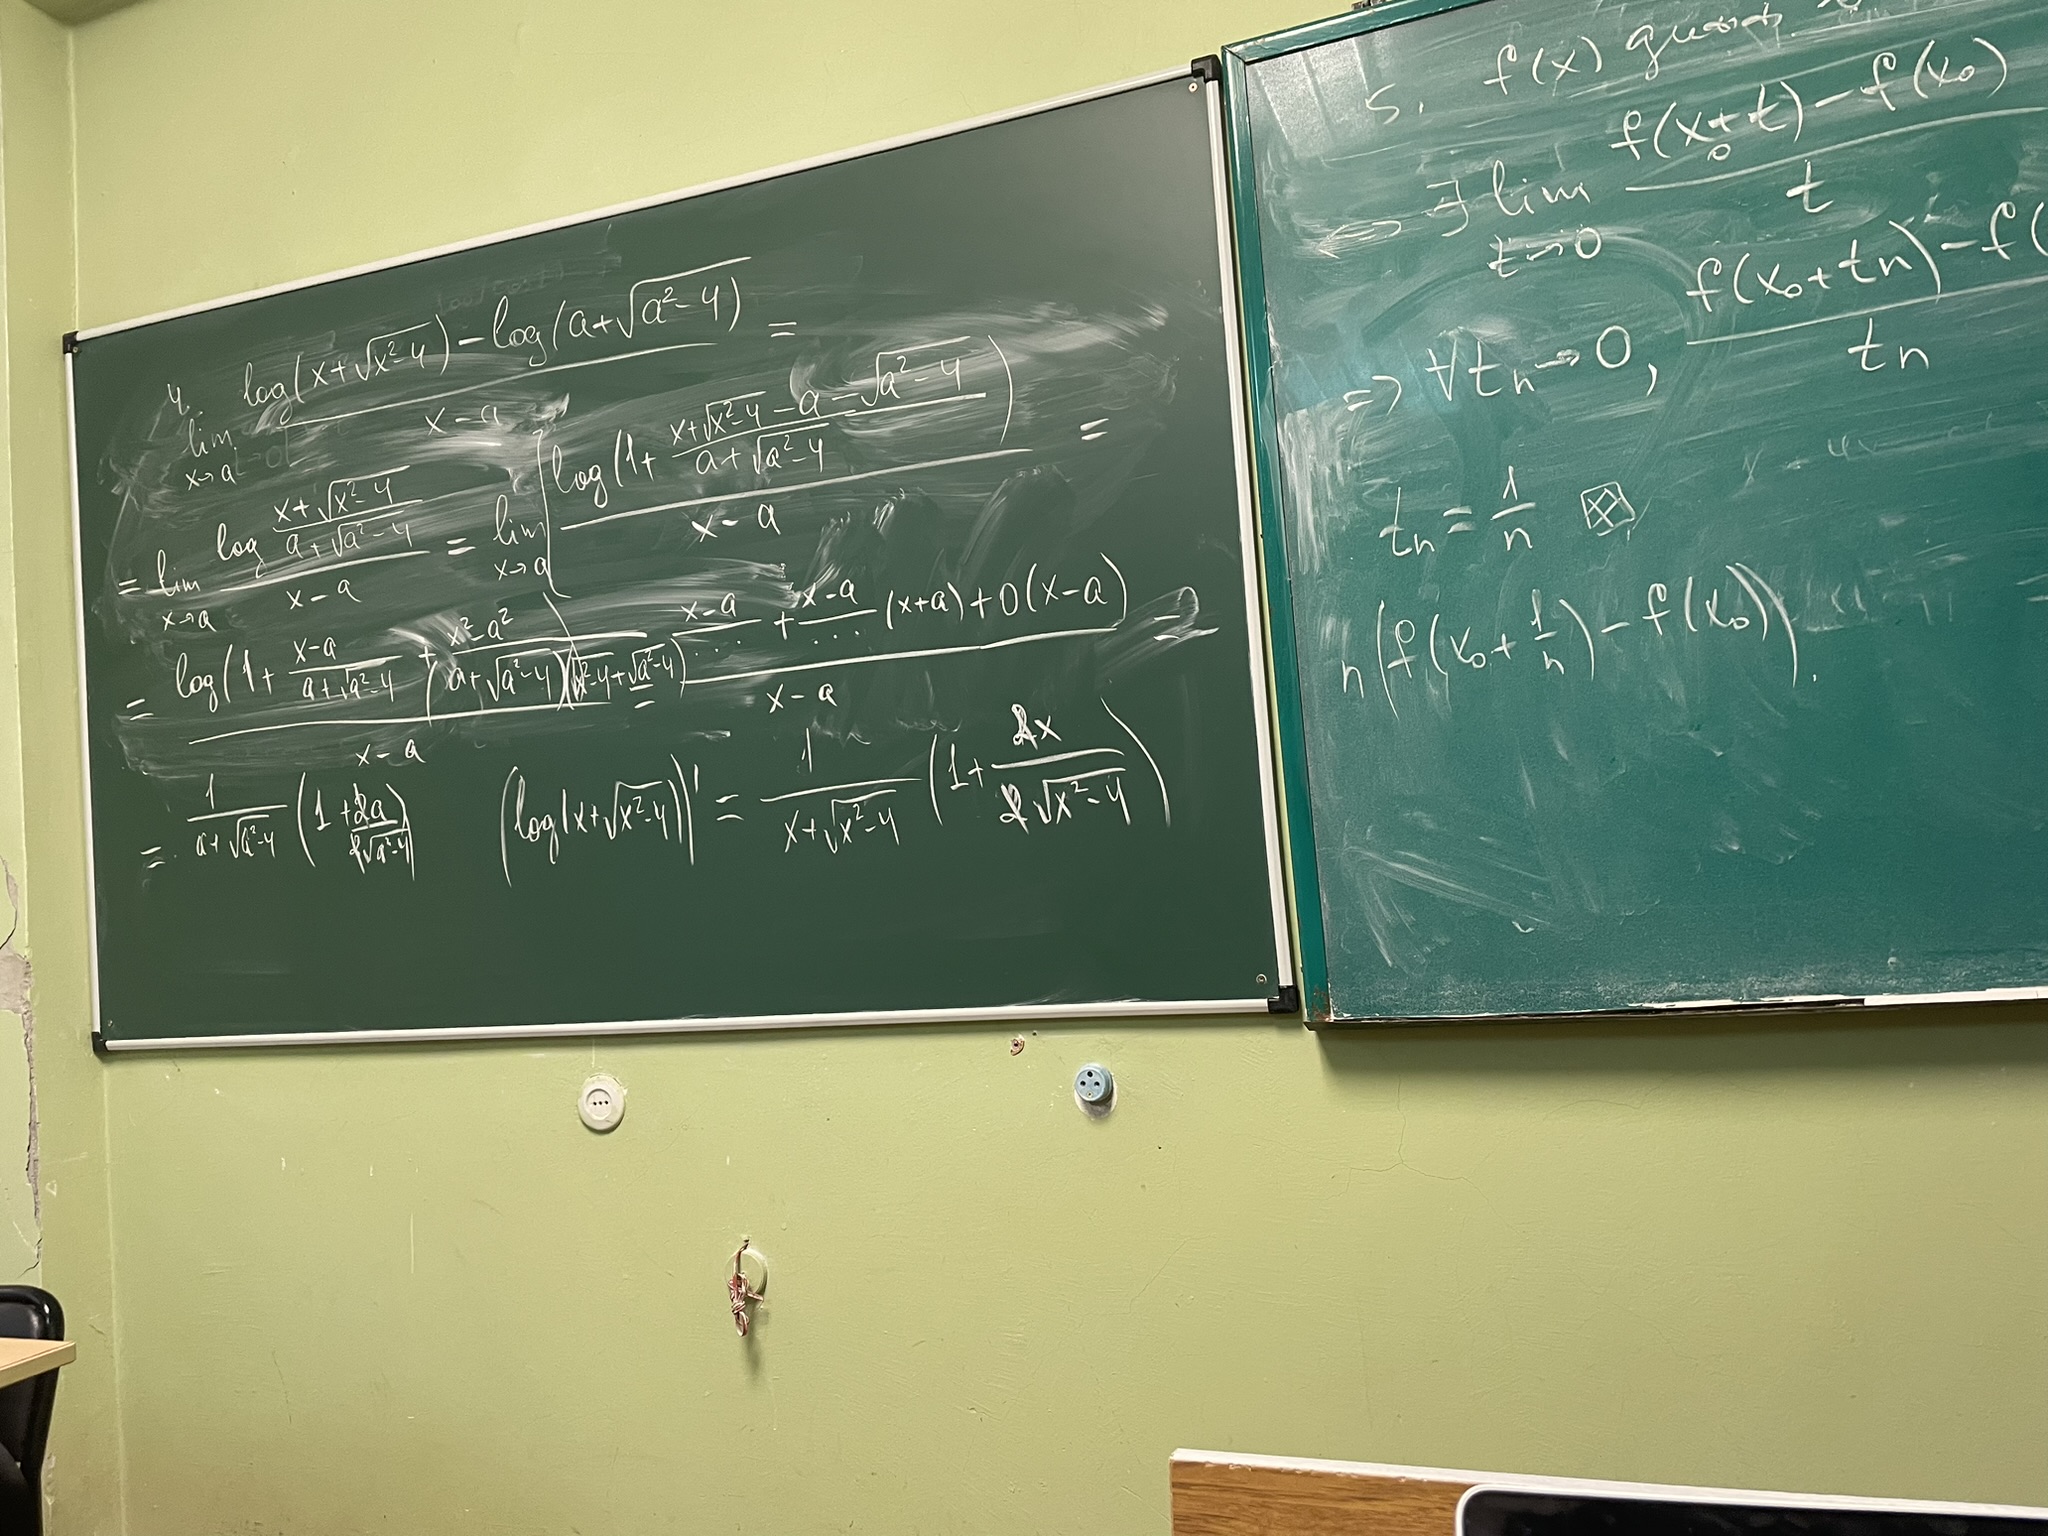 4. lim x→a (log(x+√(x²-4)) - log(a+√(a²-4)))/(x-a) =
= lim x→a (log (x+√(x²-4))/(a+√(a²-4)))/(x-a) = lim x→a (log(1+(x+√(x²-4)-a-√(a²-4))/(a+√(a²-4))))/(x-a) =
= (log(1+(x-a)/(a+√(a²-4)) + (x²-a²)/((a+√(a²-4))(√(x²-4)+√(a²-4)))))/(x-a) = ((x-a)/... + (x-a)/... (x+a)+o(x-a))/(x-a) =
= 1/(a+√(a²-4)) (1+2a/(2√(a²-4))) (log(x+√(x²-4)))' = 1/(x+√(x²-4)) (1+2x/(2√(x²-4)))
5. f(x)
<=> ∃ lim t→0 (f(x₀+t)-f(x₀))/t
=> ∀tn→0, (f(x₀+tn)-f(
tn
tn = 1/n
n(f(x₀+1/n)-f(x₀)).